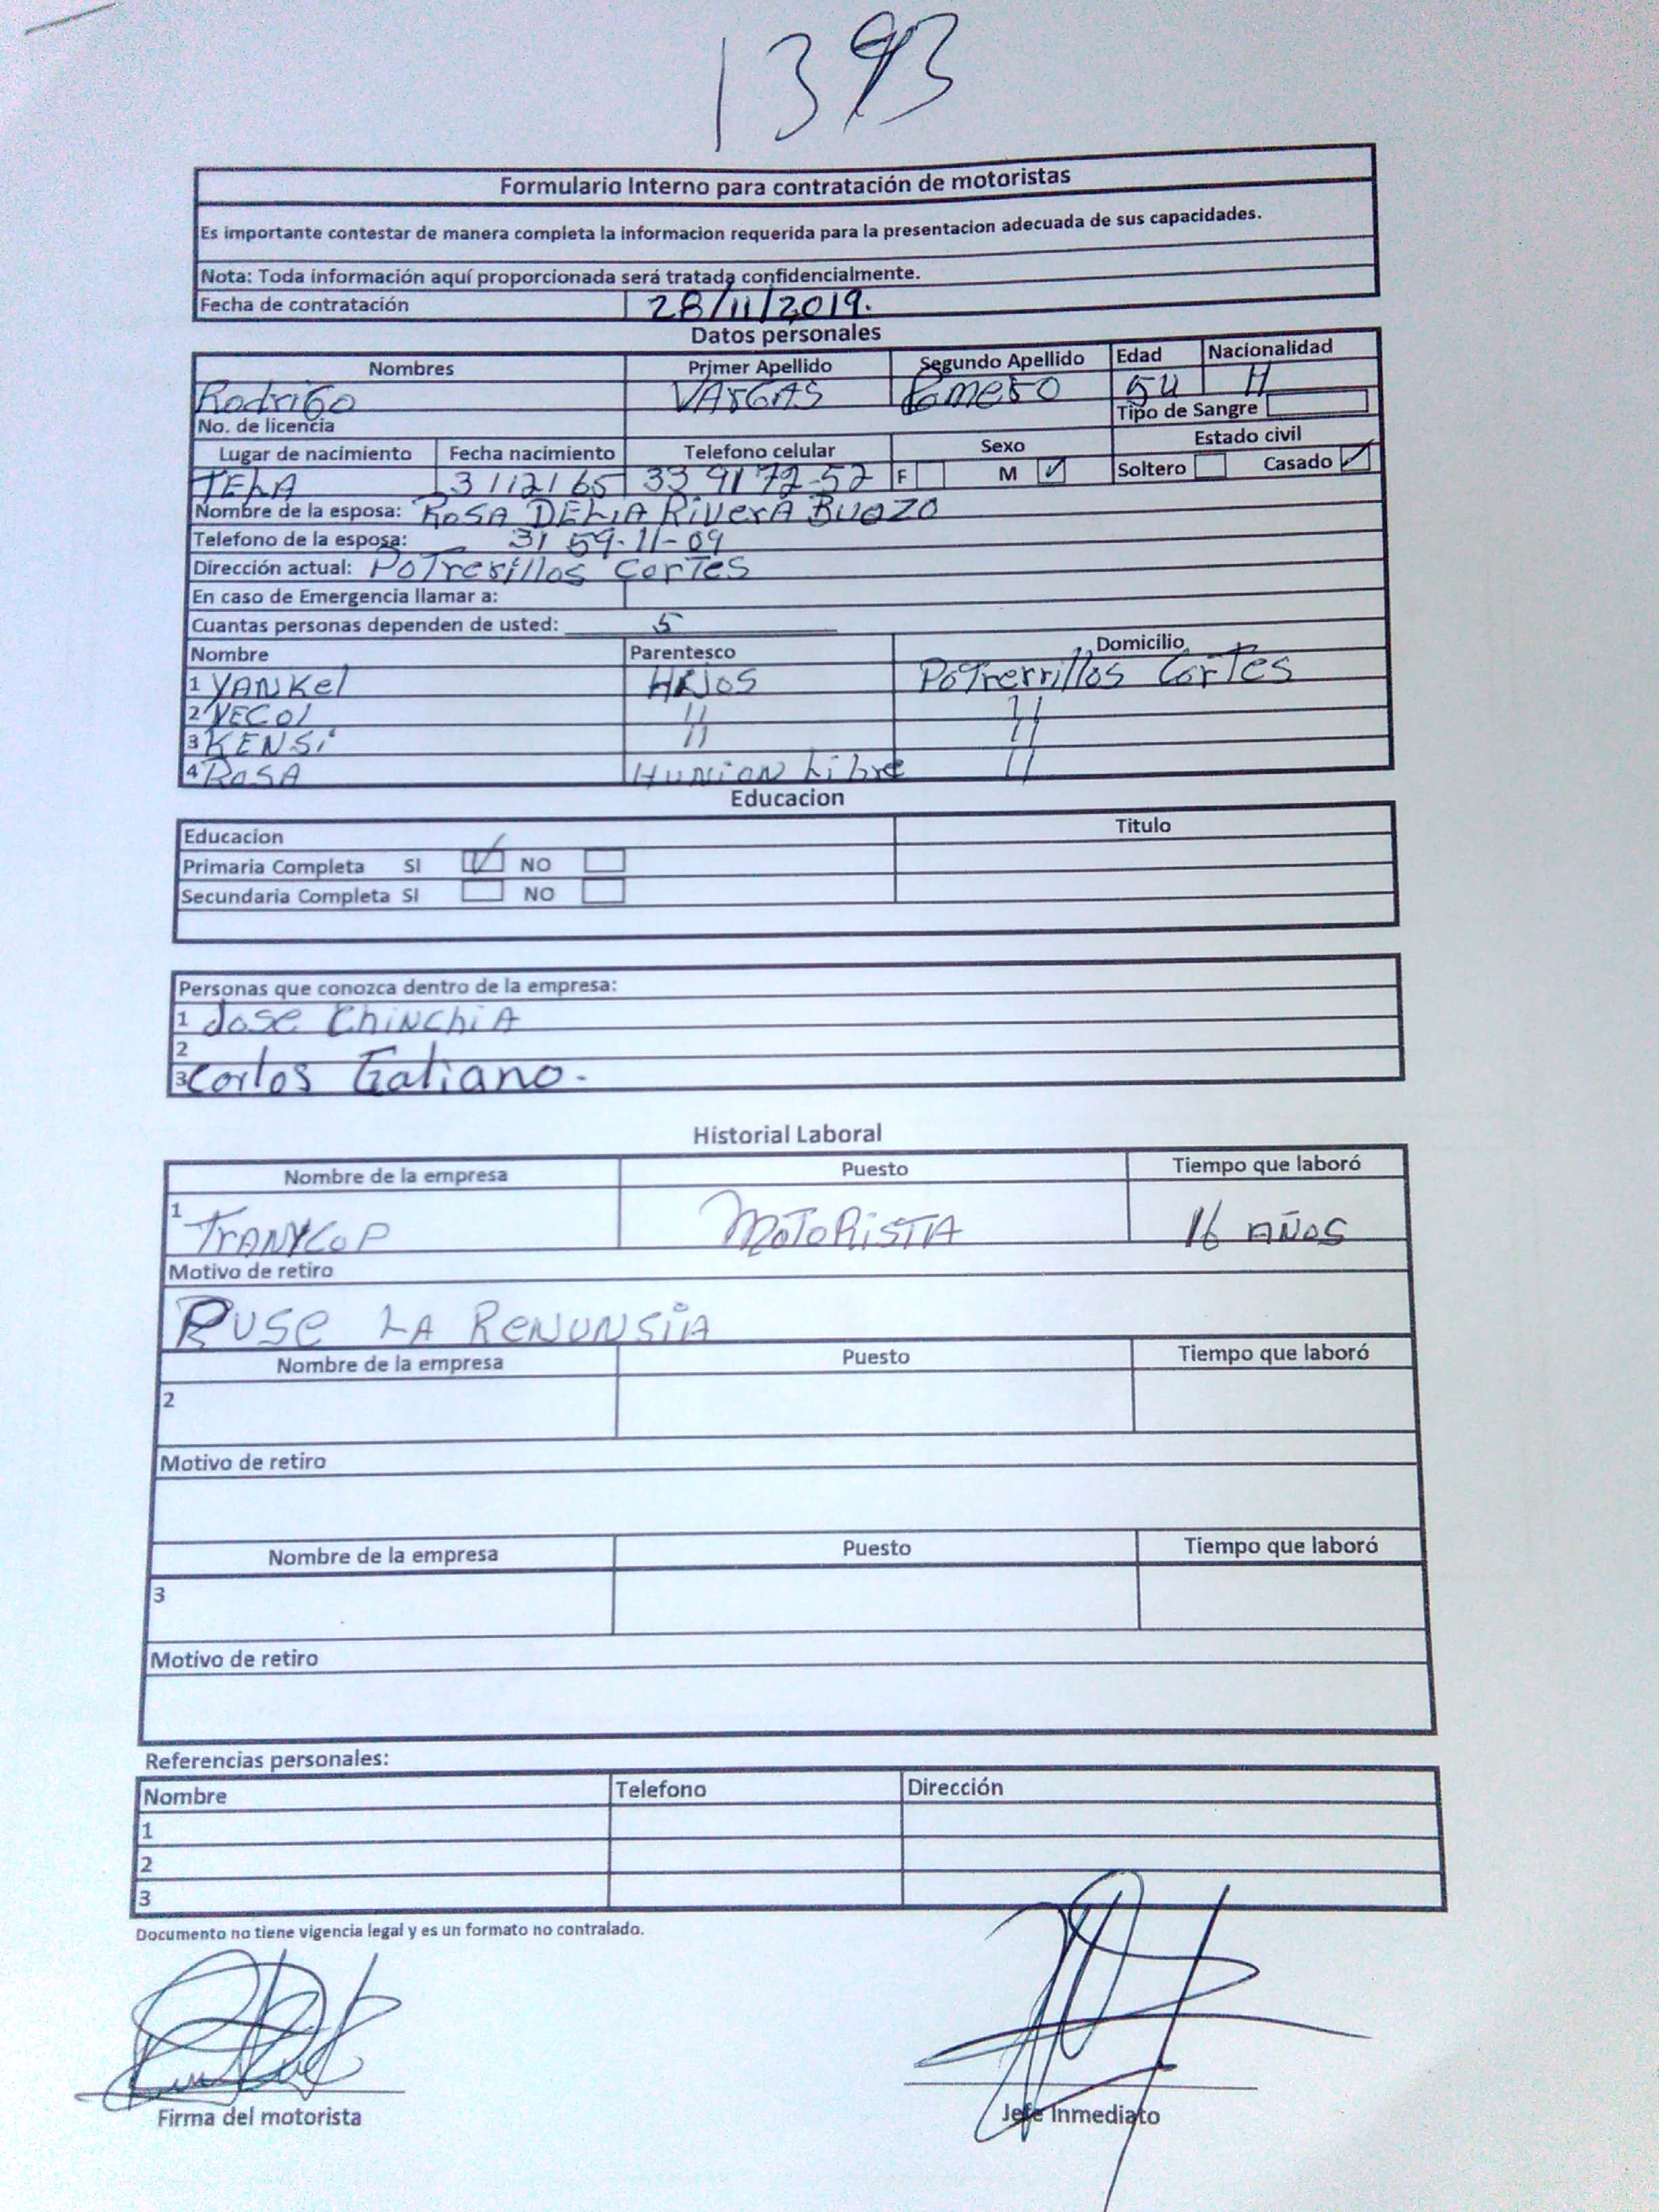 1393
Formulario Interno para contratación de motoristas
Es importante contestar de manera completa la informacion requerida para la presentacion adecuada de sus capacidades.
Nota: Toda información aquí proporcionada será tratada confidencialmente.
Fecha de contratación 28/11/2019.
Datos personales
Nombres Primer Apellido Segundo Apellido Edad Nacionalidad
Rodrigo VARGAS Romero 54 H
No. de licencia Tipo de Sangre
Lugar de nacimiento Fecha nacimiento Telefono celular Sexo Estado civil
TELA 3 112165 33 91 72-52 F M ✓ Soltero Casado ✓
Nombre de la esposa: ROSA DELIA RiverA BUEZO
Telefono de la esposa: 31 59-11-09
Dirección actual: PoTrerillos CorTes
En caso de Emergencia llamar a:
Cuantas personas dependen de usted: 5
Nombre Parentesco Domicilio
1 YANKel HIJOS PoTrerrillos CorTes
2 YECOI 11 11
3 KENSi 11 11
4 ROSA Hunion Libre 11
Educacion
Educacion Titulo
Primaria Completa SI ✓ NO
Secundaria Completa SI NO
Personas que conozca dentro de la empresa:
1 Jose ChiNchiA
2
3 Carlos Galiano.
Historial Laboral
Nombre de la empresa Puesto Tiempo que laboró
1 TRANYCOP MOTORiSTA 16 AÑOS
Motivo de retiro
PUSE LA RENUNSiIA
Nombre de la empresa Puesto Tiempo que laboró
2
Motivo de retiro
Nombre de la empresa Puesto Tiempo que laboró
3
Motivo de retiro
Referencias personales:
Nombre Telefono Dirección
1
2
3
Documento no tiene vigencia legal y es un formato no contralado.
Firma del motorista Jefe Inmediato